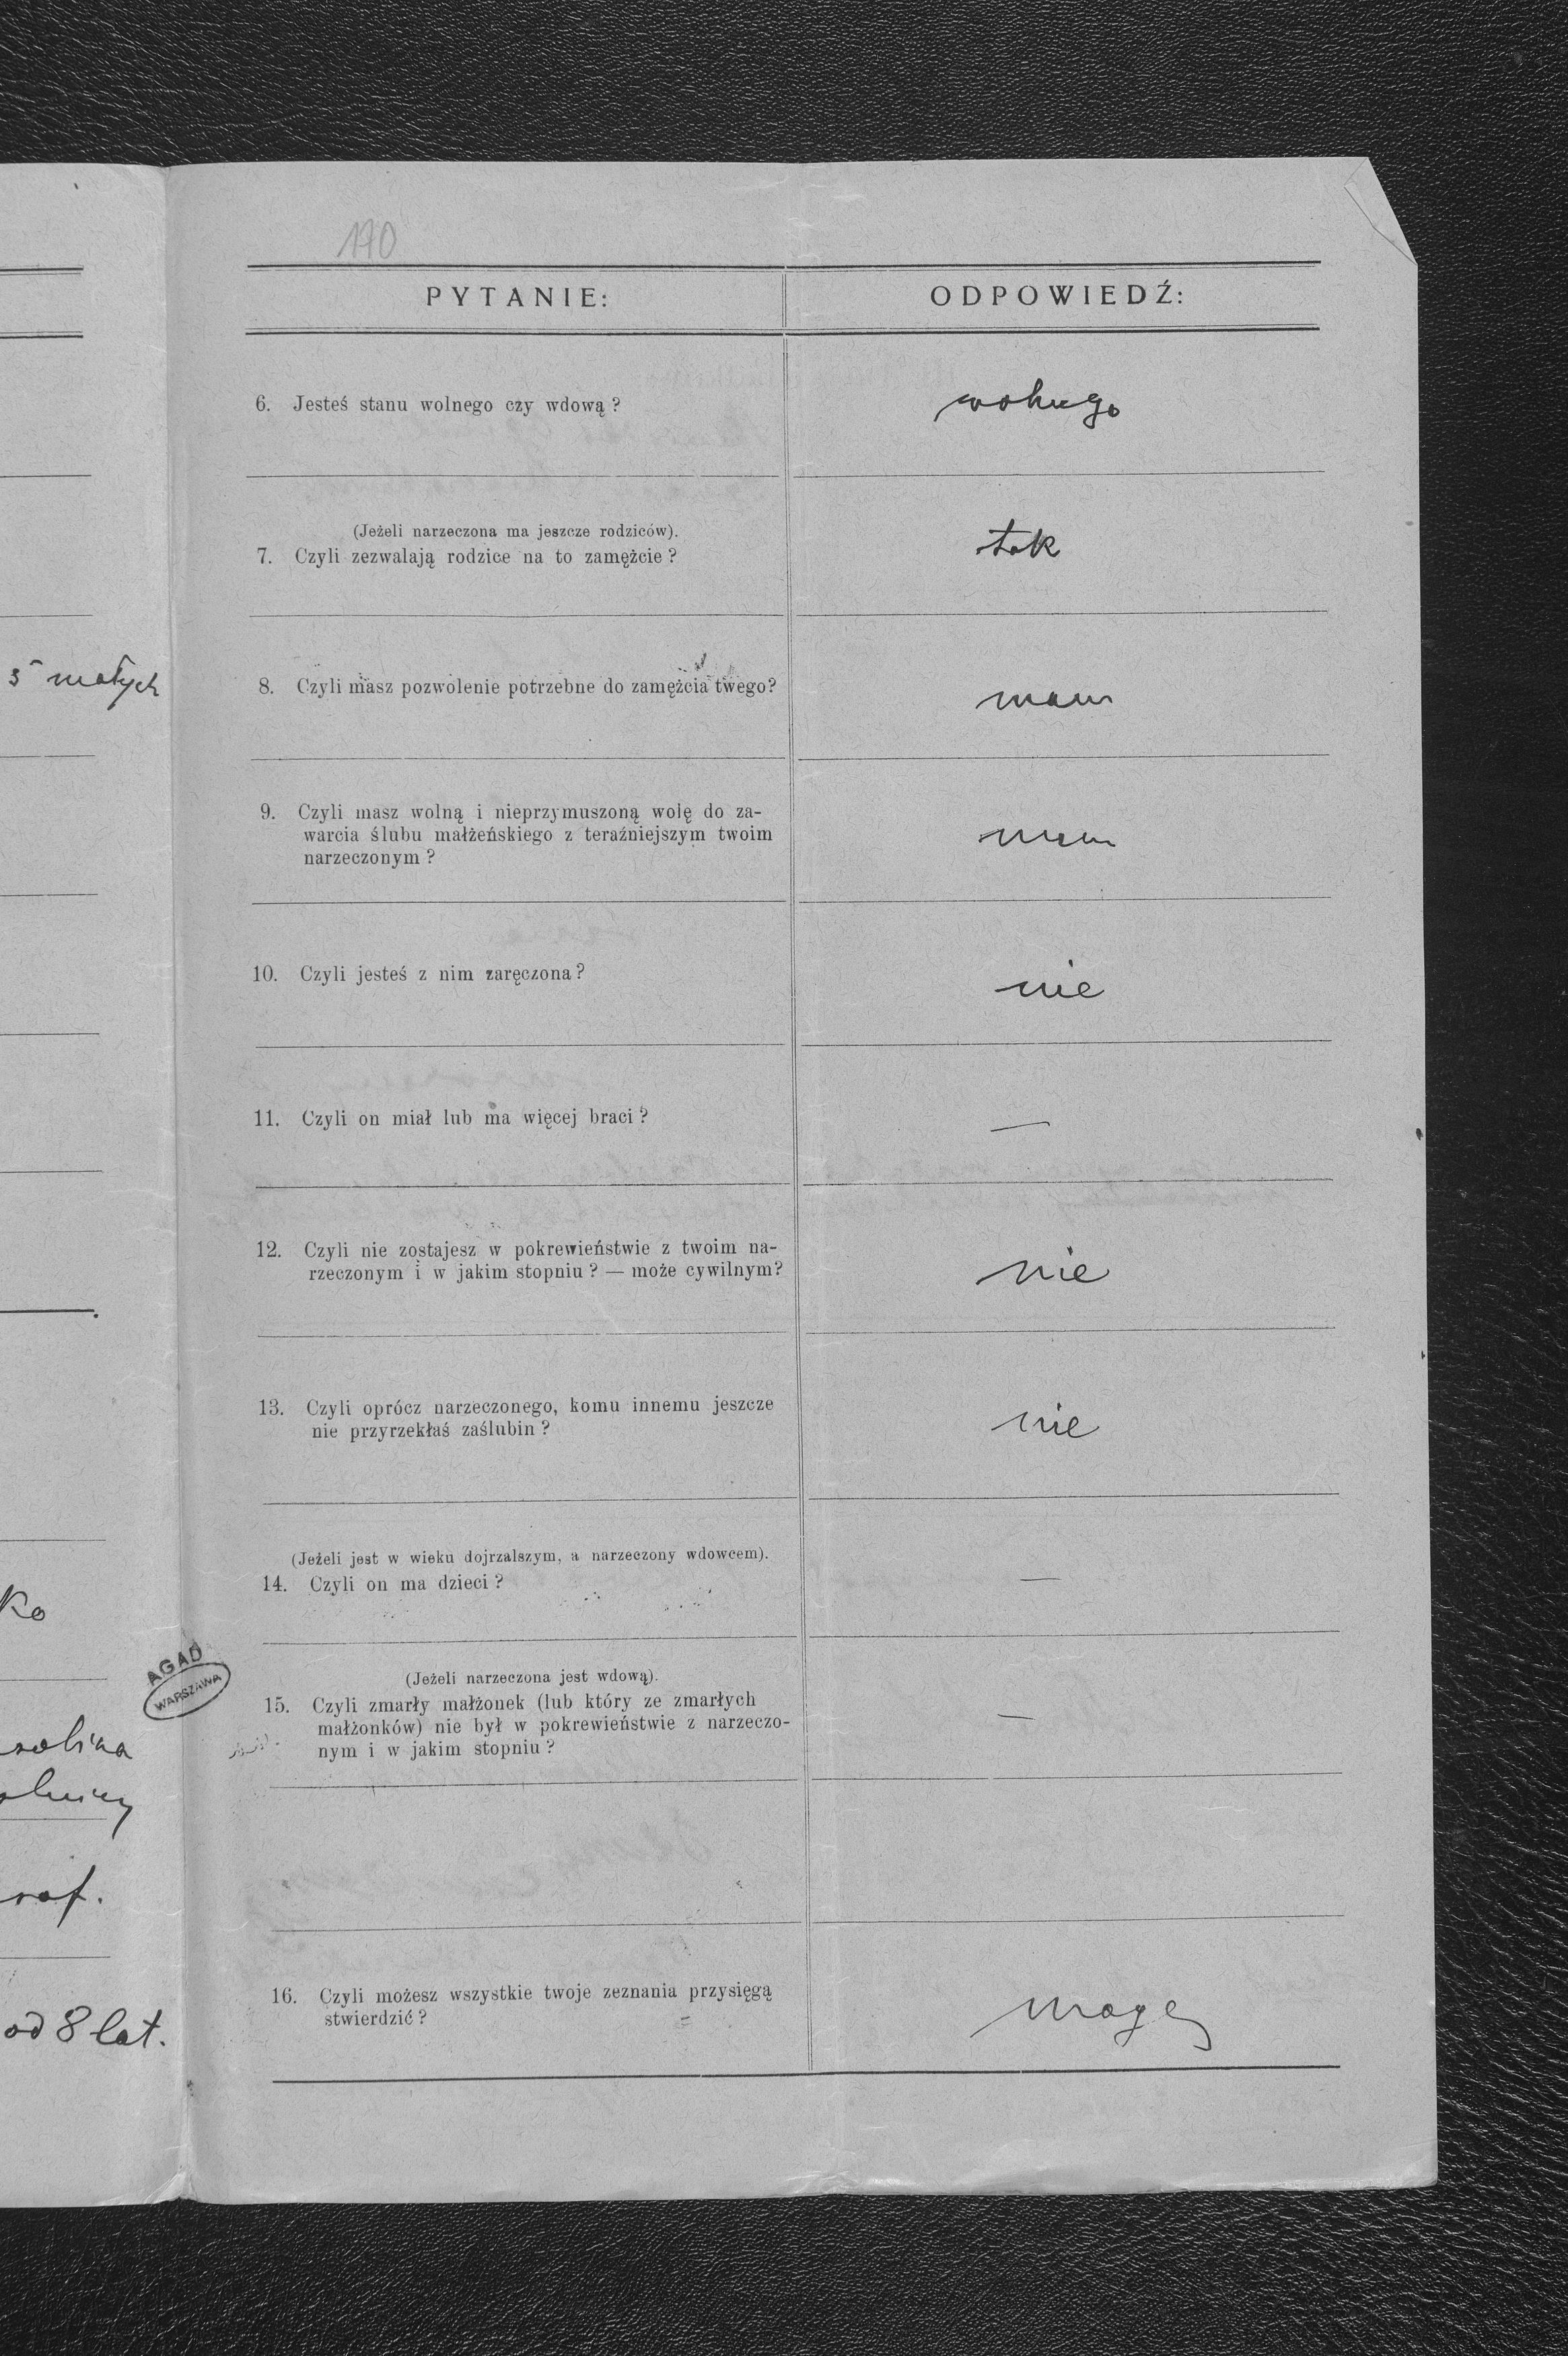 170
PYTANIE:
ODPOWIEDŹ:
6. Jesteś stanu wolnego czy wdową?
wolnego
(Jeżeli narzeczona ma jeszcze rodziców).
7. Czyli zezwalają rodzice na to zamężcie?
tak
5 małych
8. Czyli masz pozwolenie potrzebne do zamężcia twego?
mam
9. Czyli masz wolną i nieprzymuszoną wolę do za-
warcia ślubu małżeńskiego z teraźniejszym twoim
narzeczonym?
mam
10. Czyli jesteś z nim zaręczona?
nie
11. Czyli on miał lub ma więcej braci?
—
12. Czyli nie zostajesz w pokrewieństwie z twoim na-
rzeczonym i w jakim stopniu? — może cywilnym?
nie
13. Czyli oprócz narzeczonego, komu innemu jeszcze
nie przyrzekłaś zaślubin?
nie
(Jeżeli jest w wieku dojrzalszym, a narzeczony wdowcem).
14. Czyli on ma dzieci?
—
ko
AGAD
WARSZAWA
(Jeżeli narzeczona jest wdową).
15. Czyli zmarły małżonek (lub który ze zmarłych
małżonków) nie był w pokrewieństwie z narzeczo-
nym i w jakim stopniu?
—
raf.
16. Czyli możesz wszystkie twoje zeznania przysięgą
stwierdzić?
mogę
od 8 lat.